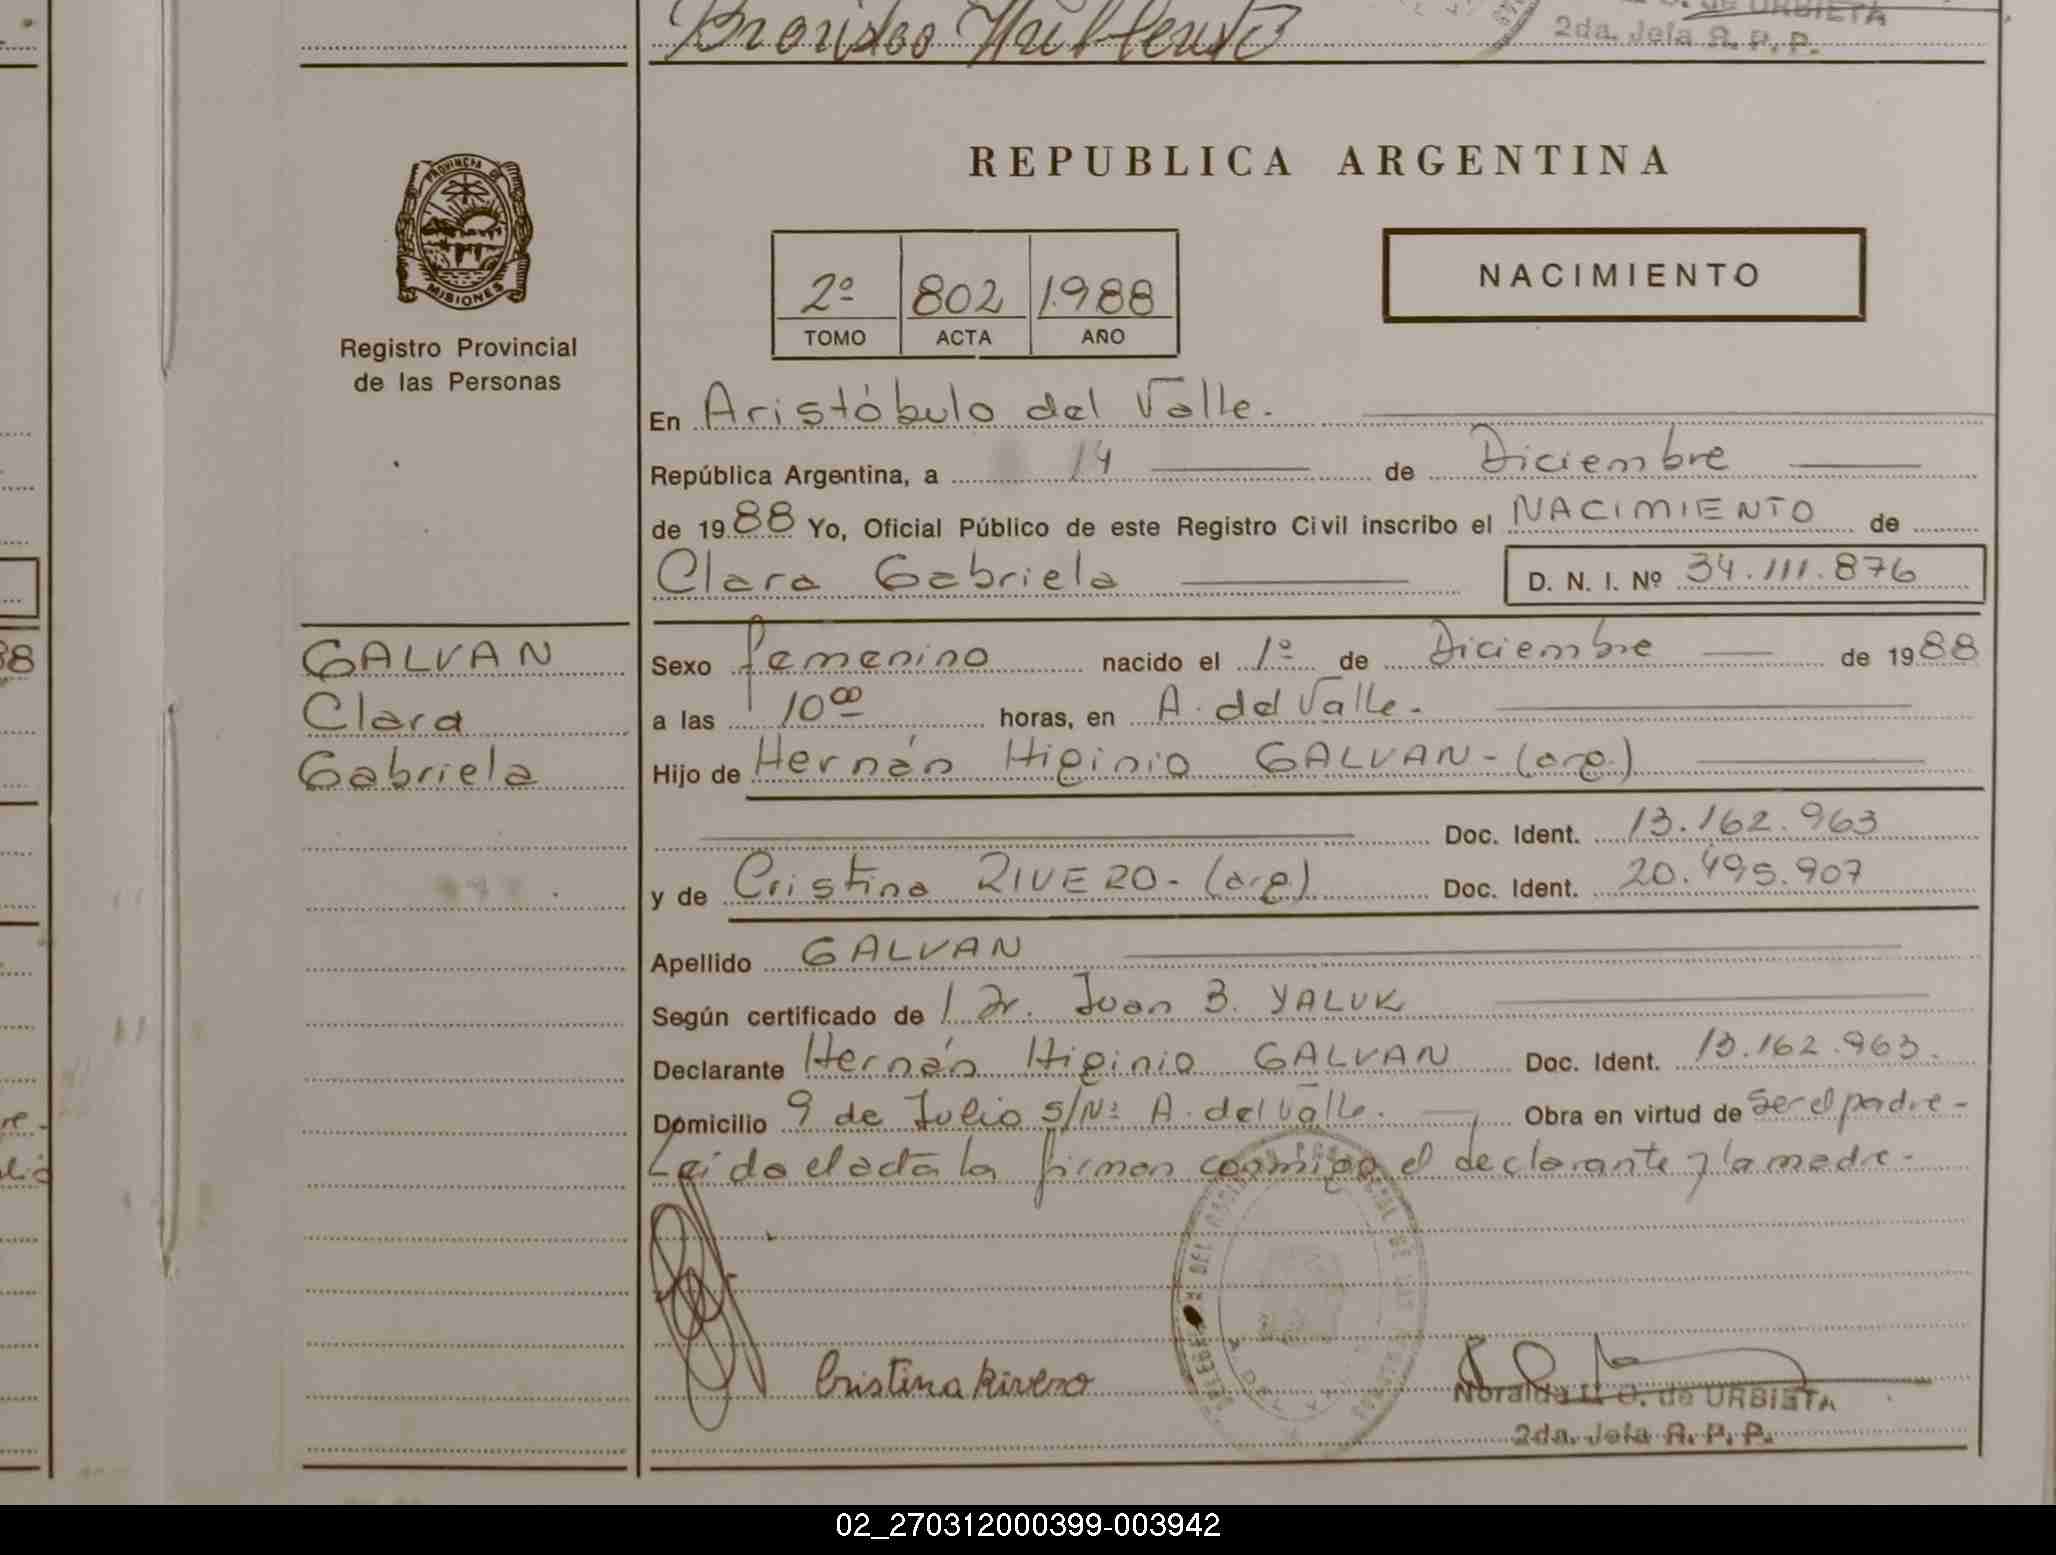 2da. Jefa R. P. P.
REPUBLICA ARGENTINA
PROVINCIA DE
MISIONES
Registro Provincial
de las Personas
2º 802 1.988
TOMO ACTA AÑO
NACIMIENTO
En Aristóbulo del Valle.
República Argentina, a 14 de Diciembre
de 1988 Yo, Oficial Público de este Registro Civil inscribo el NACIMIENTO de
Clara Gabriela D. N. I. Nº 34.111.876
GALVAN
Clara
Gabriela
Sexo femenino nacido el 1º de Diciembre de 1988
a las 10 00 horas, en A. del Valle.
Hijo de Hernán Higinio GALVAN - (arg.)
Doc. Ident. 13.162.963
y de Cristina RIVERO - (arg) Doc. Ident. 20.495.907
Apellido GALVAN
Según certificado de Dr. Juan B. YALUK
Declarante Hernán Higinio GALVAN Doc. Ident. 13.162.963.
Domicilio 9 de Julio S/Nº A. del Valle. Obra en virtud de Ser el padre -
Leída el acta la firman conmigo el declarante y la madre -
Cristina Rivero
de URBIETA
2da. Jefa R. P. P.
02_270312000399-003942